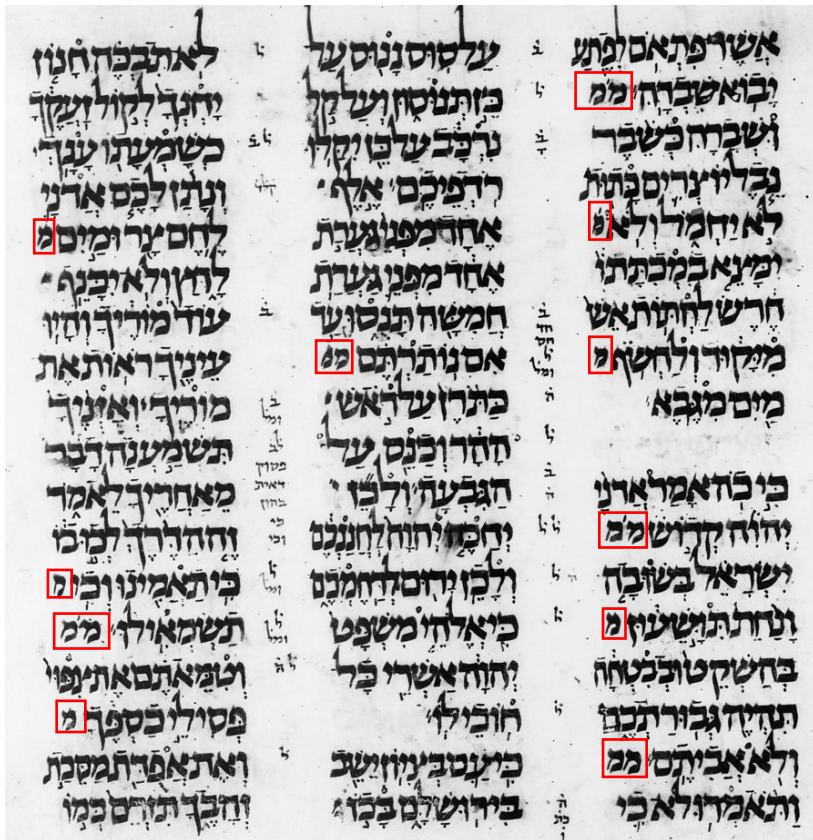 אשר פתאם לפתע
יבוא שברה ממ
ושברה כשבר
נבל יוצרים כתות
לא יחמל ולא מ
ימצא במכתתו
חרש לחתות אש
מיקוד ולחשף מ
מים מגבא
כי כה אמר אדני
יהוה קדוש ממ
ישראל בשובה
ונחת תושעון מ
בהשקט ובבטחה
תהיה גבורתכם
ולא אביתם ממ
ותאמרו לא כי
על סוס ננוס על
כן תנוסון ועל קל
נרכב על כן יקלו
רדפיכם אלף
אחד מפני גערת
אחד מפני גערת
חמשה תנסו עד
אם נותרתם ממ
כתרן על ראש
ההר וכנס על
הגבעה ולכן
יחכה יהוה לחננכם
ולכן ירום לרחמכם
כי אלהי משפט
יהוה אשרי כל
חוכי לו
כי עם בציון ישב
בירושלם בכו
לא תבכה חנון
יחנך לקול זעקך
כשמעתו ענך
ונתן לכם אדני
לחם צר ומים מ
לחץ ולא יכנף
עוד מוריך והיו
עיניך ראות את
מוריך ואזניך
תשמענה דבר
מאחריך לאמר
זה הדרך לכו בו
כי תאמינו וכי מ
תשמאילו ממ
וטמאתם את צפוי
פסילי כספך מ
ואת אפדת מסכת
זהבך תזרם כמו